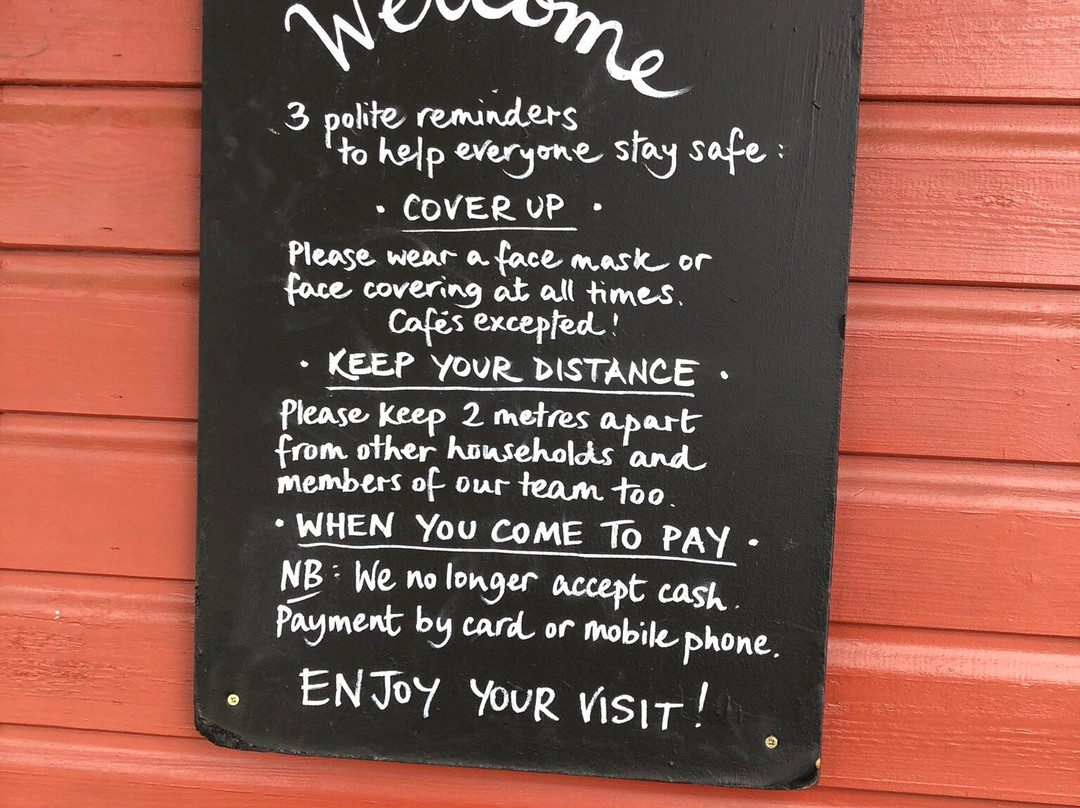 Welcome
3 polite reminders
to help everyone stay safe:
• COVER UP •
Please wear a face mask or
face covering at all times.
Cafés excepted!
• KEEP YOUR DISTANCE •
Please keep 2 metres apart
from other households and
members of our team too.
• WHEN YOU COME TO PAY •
NB: We no longer accept cash.
Payment by card or mobile phone.
ENJOY YOUR VISIT!